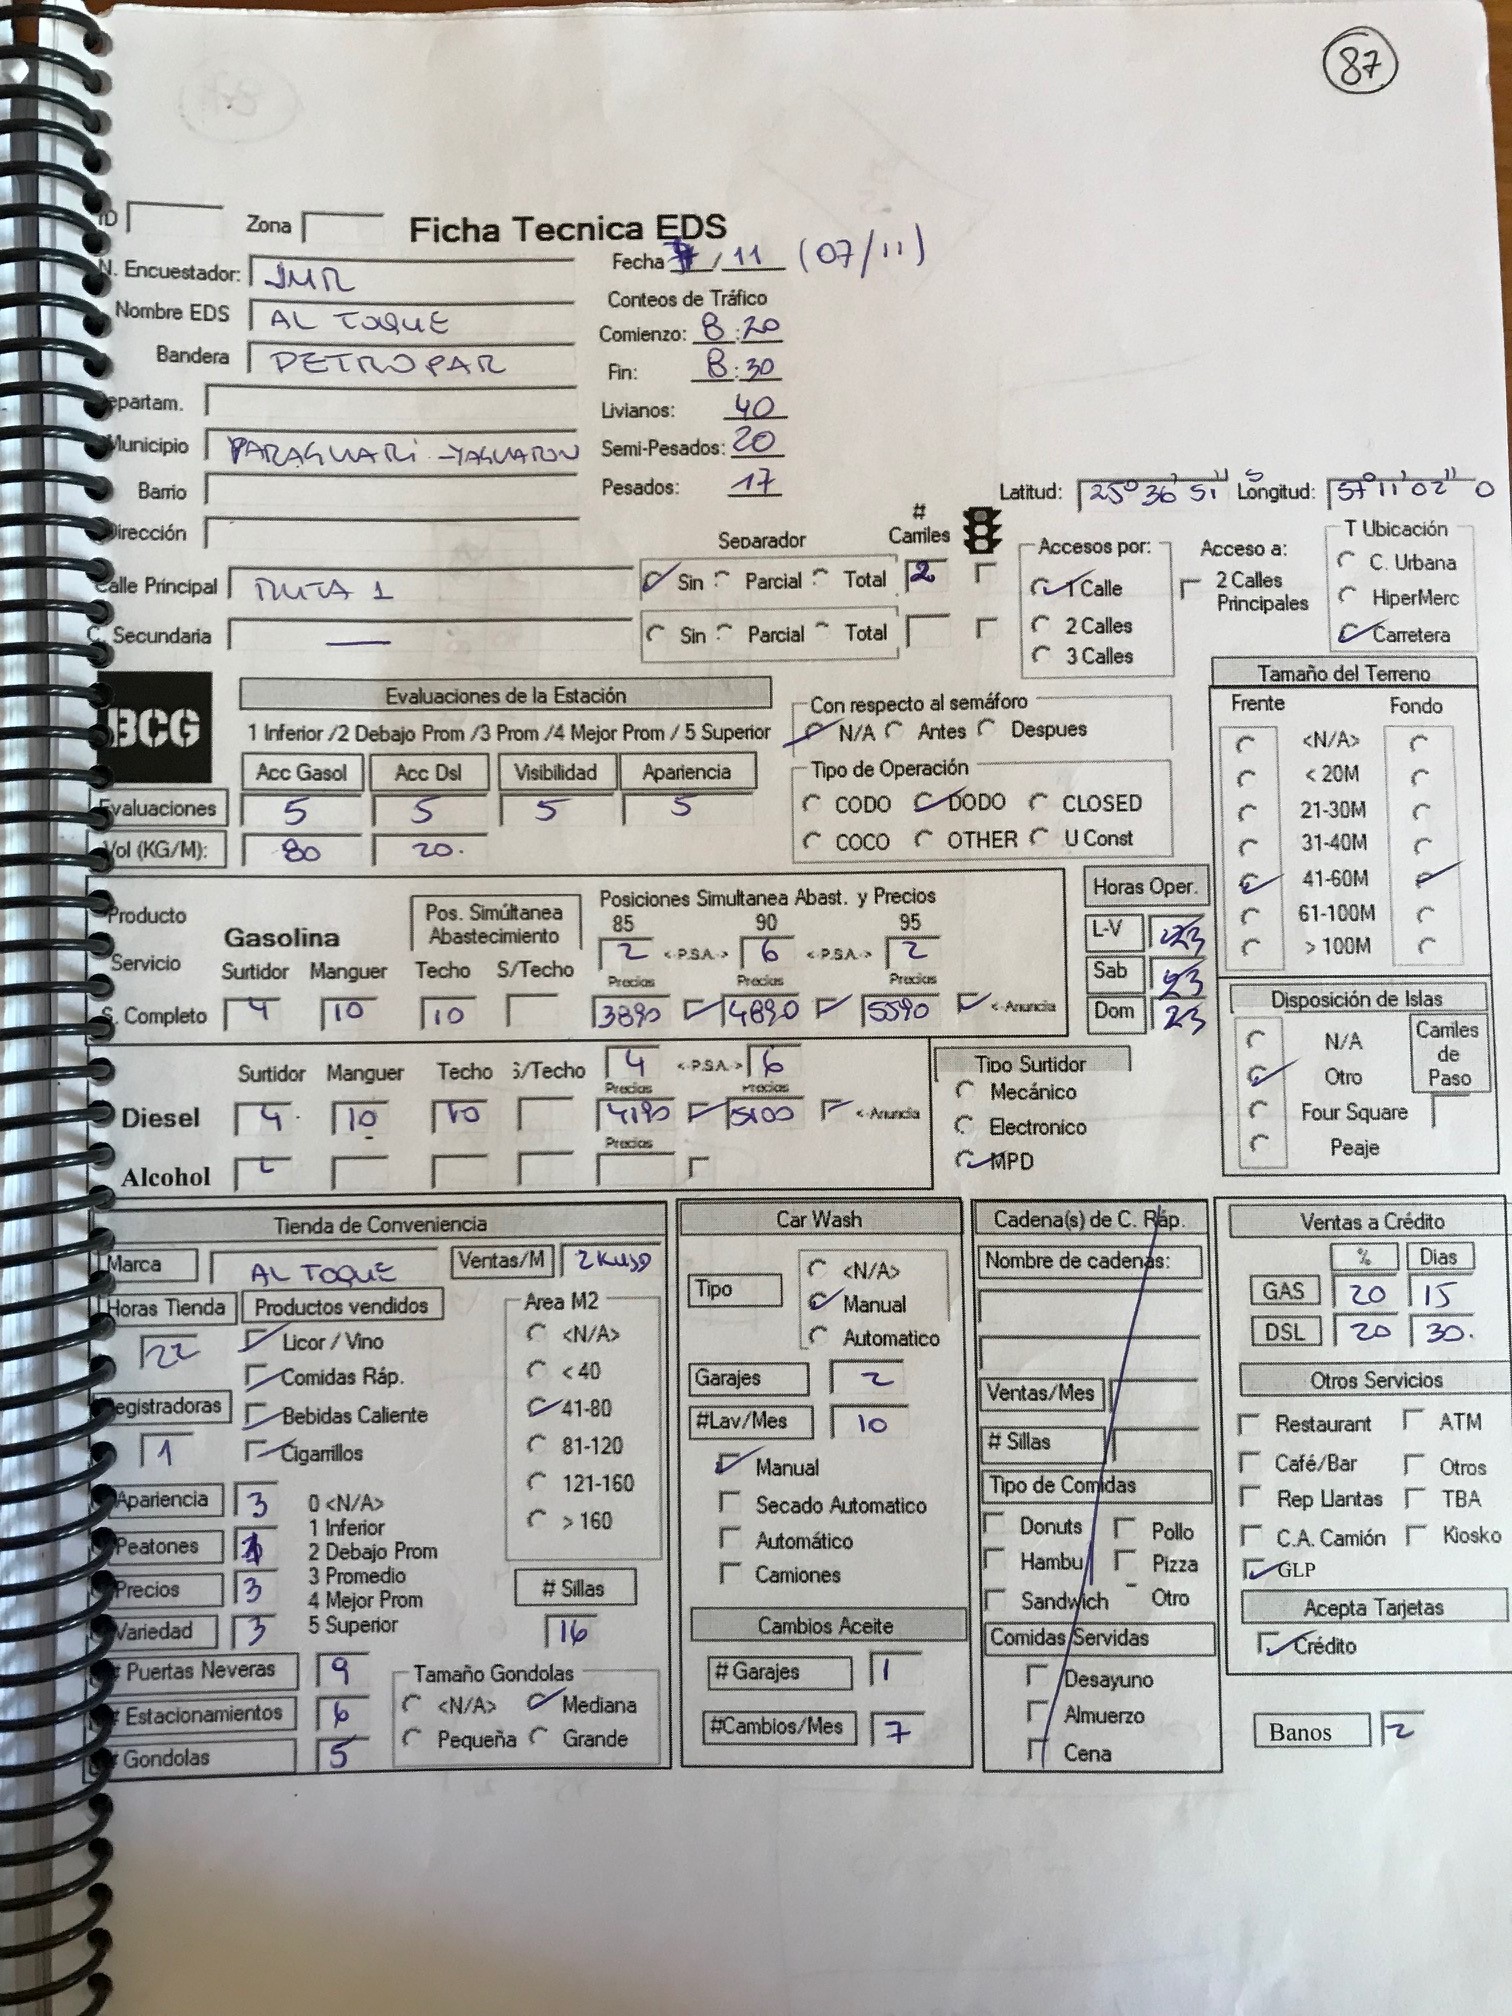 87
ID Zona Ficha Tecnica EDS
Fecha /11 (07/11)
N. Encuestador: JMR
Conteos de Tráfico
Nombre EDS AL TOQUE
Comienzo: 8:20
Bandera PETROPAR
Fin: 8:30
Departam.
Livianos: 40
Municipio PARAGUARI - YAGUARON
Semi-Pesados: 20
Barrio
Pesados: 17
Latitud: 25° 36' 51" S Longitud: 57° 11' 02" O
Dirección
Separador # Carriles Accesos por: Acceso a: T Ubicación
Calle Principal RUTA 1 Sin Parcial Total 2
1 Calle 2 Calles Principales C. Urbana
HiperMerc
C. Secundaria — Sin Parcial Total
2 Calles Carretera
3 Calles
BCG
Evaluaciones de la Estación
1 Inferior /2 Debajo Prom /3 Prom /4 Mejor Prom / 5 Superior
Acc Gasol Acc Dsl Visibilidad Apariencia
Evaluaciones 5 5 5 5
Vol (KG/M): 80 20.
Con respecto al semáforo
N/A Antes Despues
Tipo de Operación
CODO DODO CLOSED
COCO OTHER U Const
Tamaño del Terreno
Frente Fondo
<N/A>
< 20M
21-30M
31-40M
41-60M
61-100M
> 100M
Producto
Servicio
Gasolina
Pos. Simúltanea Abastecimiento
Posiciones Simultanea Abast. y Precios
85 90 95
2 <-P.S.A.-> 6 <-P.S.A.-> 2
Surtidor Manguer Techo S/Techo Precios Precios Precios
S. Completo 4 10 10 3890 4890 5590 <-Anuncia
Horas Oper.
L-V 23
Sab 23
Dom 23
Surtidor Manguer Techo S/Techo 4 <-P.S.A.-> 6
Precios Precios
Diesel 4 10 10 4190 5100 <-Anuncia
Precios
Alcohol
Tipo Surtidor
Mecánico
Electronico
MPD
Disposición de Islas
N/A
Otro
Four Square
Peaje
Carriles de Paso
Tienda de Conveniencia
Marca AL TOQUE Ventas/M 2KUSD
Horas Tienda Productos vendidos
22
Licor / Vino
Comidas Ráp.
Bebidas Caliente
Cigarrillos
Registradoras
1
Area M2
<N/A>
< 40
41-80
81-120
121-160
> 160
Apariencia 3
Peatones
Precios 3
Variedad 3
0 <N/A>
1 Inferior
2 Debajo Prom
3 Promedio
4 Mejor Prom
5 Superior
# Sillas
16
# Puertas Neveras 9
# Estacionamientos 6
# Gondolas 5
Tamaño Gondolas
<N/A> Mediana
Pequeña Grande
Car Wash
Tipo
<N/A>
Manual
Automatico
Garajes 2
#Lav/Mes 10
Manual
Secado Automatico
Automático
Camiones
Cambios Aceite
# Garajes 1
#Cambios/Mes 7
Cadena(s) de C. Ráp.
Nombre de cadenas:
Ventas/Mes
# Sillas
Tipo de Comidas
Donuts Pollo
Hambu Pizza
Sandwich Otro
Comidas Servidas
Desayuno
Almuerzo
Cena
Ventas a Crédito
% Dias
GAS 20 15
DSL 20 30.
Otros Servicios
Restaurant ATM
Café/Bar Otros
Rep Llantas TBA
C.A. Camión Kiosko
GLP
Acepta Tarjetas
Crédito
Banos 2